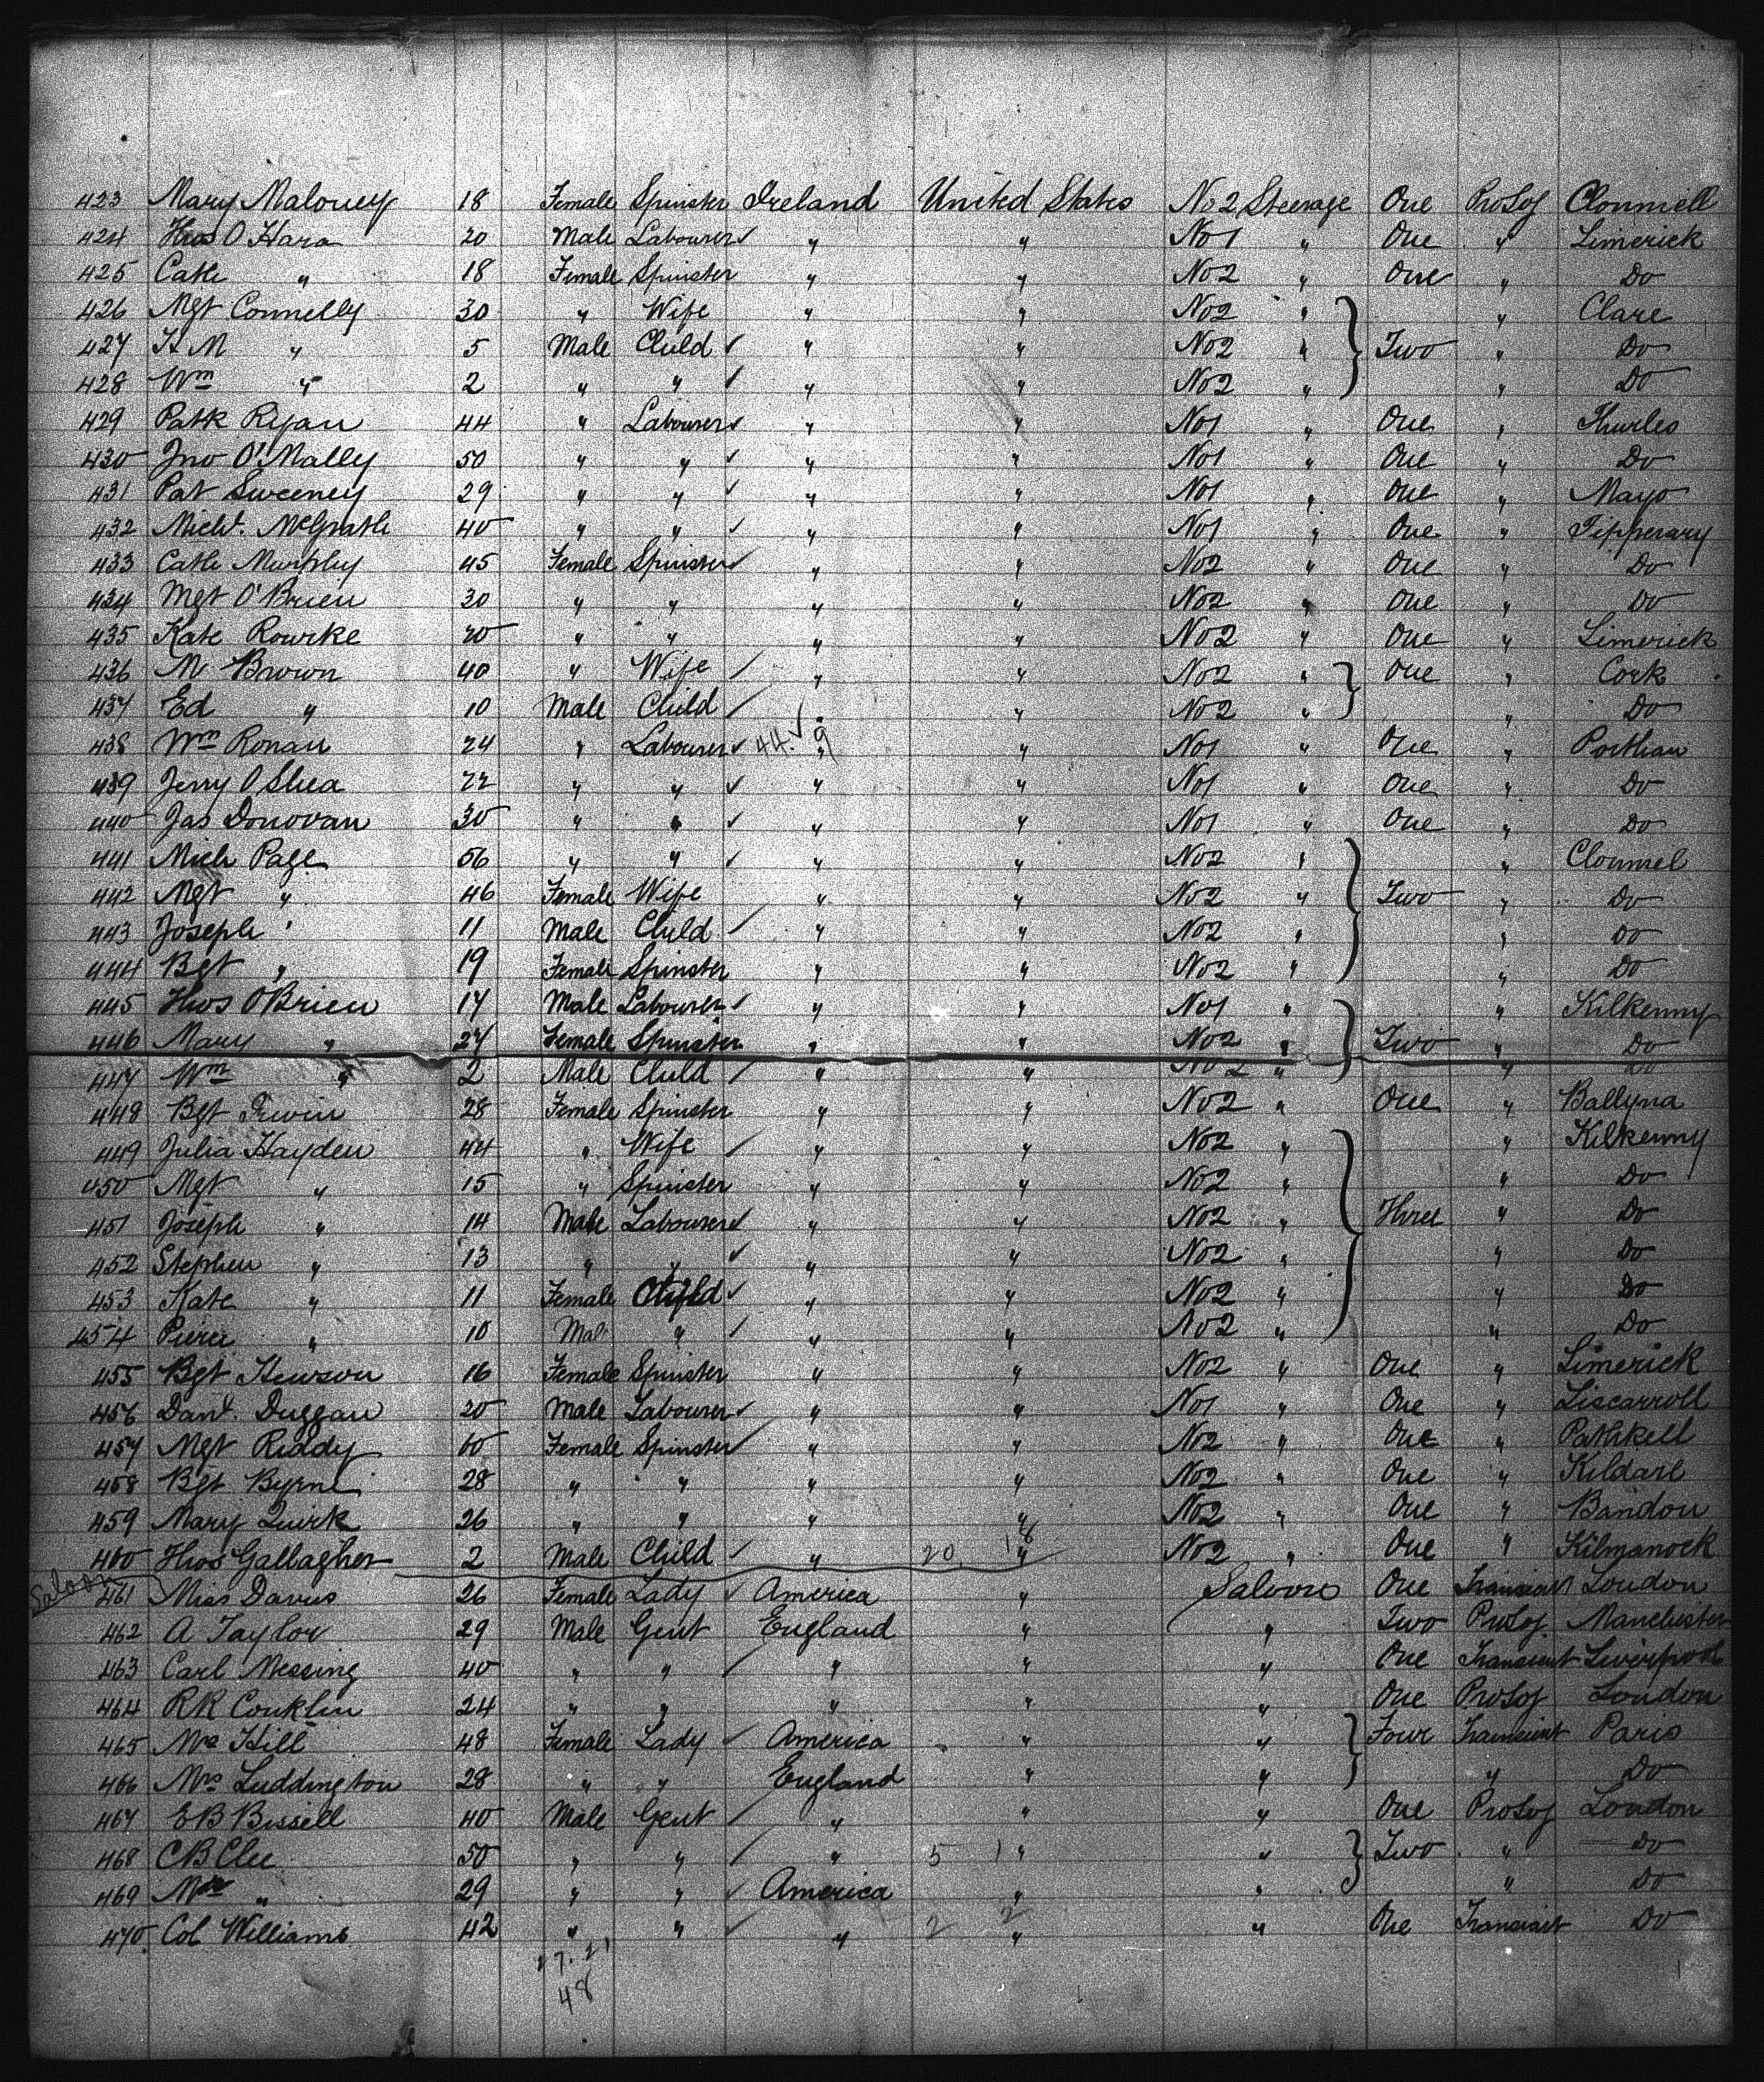 423 Mary Maloney 18 Female Spinster Ireland United States No 2 Steerage One ProSoj Clonmell
424 Thos O'Hara 20 Male Labourer " " No 1 " One " Limerick
425 Cath " 18 Female Spinster " " No 2 " One " Do
426 Mgt Connelly 30 " Wife " " No 2 " " Clare
427 H M " 5 Male Child " " No 2 " Two " Do
428 Wm " 2 " " " " No 2 " " Do
429 Patk Ryan 44 " Labourer " " No 1 " One " Thurles
430 Jno O'Mally 50 " " " " No 1 " One " Do
431 Pat Sweeney 29 " " " " No 1 " One " Mayo
432 Michl. McGrath 40 " " " " No 1 " One " Tipperary
433 Cath Murphy 45 Female Spinster " " No 2 " One " Do
434 Mgt O'Brien 30 " " " " No 2 " One " Do
435 Kate Rourke 20 " " " " No 2 " One " Limerick
436 M Brown 40 " Wife " " No 2 " One " Cork
437 Ed " 10 Male Child " " No 2 " " Do
438 Wm Ronan 24 " Labourer 44. 9 " " No 1 " One "
439 Jerry O Shea 22 " " " " No 1 " One " Do
440 Jas Donovan 30 " " " " No 1 " One " Do
441 Mich Page 56 " " " " No 2 " " Clonmel
442 Mgt " 46 Female Wife " " No 2 " Two " Do
443 Joseph " 11 Male Child " " No 2 " " Do
444 Bgt " 19 Female Spinster " " No 2 " " Do
445 Thos O'Brien 17 Male Labourer " " No 1 " " Kilkenny
446 Mary " 27 Female Spinster " " No 2 " Two " Do
447 Wm " 2 Male Child " " No 2 " " Do
448 Bgt Irwin 28 Female Spinster " " No 2 " One " Ballyna
449 Julia Hayden 44 " Wife " " No 2 " " Kilkenny
450 Mgt " 15 " Spinster " " No 2 " " Do
451 Joseph " 14 Male Labourer " " No 2 " Three " Do
452 Stephen " 13 " " " " No 2 " " Do
453 Kate " 11 Female Child " " No 2 " " Do
454 Pierce " 10 Male " " " No 2 " " Do
455 Bgt Hewson 16 Female Spinster " " No 2 " One " Limerick
456 Danl. Duggan 20 Male Labourer " " No 1 " One " Liscarroll
457 Mgt Riddy 60 Female Spinster " " No 2 " One " Pathkell
458 Bgt Byrne 28 " " " " No 2 " One " Kildare
459 Mary Quirk 26 " " " " No 2 " One " Bandon
460 Thos Gallagher 2 Male Child " 20 18 " No 2 " One " Kilmanock
Saloon 461 Miss Davis 26 Female Lady America " Saloon One Transient London
462 A Taylor 29 Male Gent England " " Two ProSoj Manchester
463 Carl Messing 40 " " " " " One Transient Liverpool
464 RR Conklin 24 " " " " " One ProSoj London
465 Mrs Hill 48 Female Lady America " " Four Transient Paris
466 Mrs Luddington 28 " " England " " " Do
467 E B Bissell 40 Male Gent " " " One ProSoj London
468 C B Clee 50 " " " 5 1 " " Two " Do
469 " 29 " " America " " " Do
470 Col Williams 42 " " " 2 2 " " One Transient Do
27. 21
48